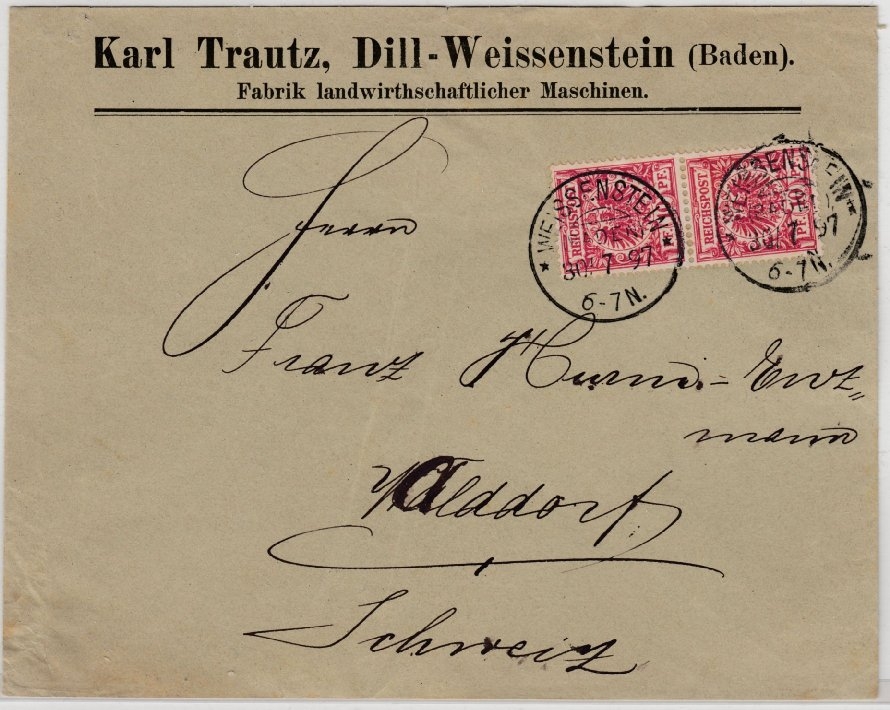 Karl Trautz, Dill-Weissenstein (Baden).
Fabrik landwirthschaftlicher Maschinen.
REICHSPOST
PF.
REICHSPOST
10 PF.
* WEISSENSTEIN *
30/7 97
6-7N.
WEISSENSTEIN
30/7 97
6-7N.
Herrn
Franz
mann
Walddorf
Schweiz